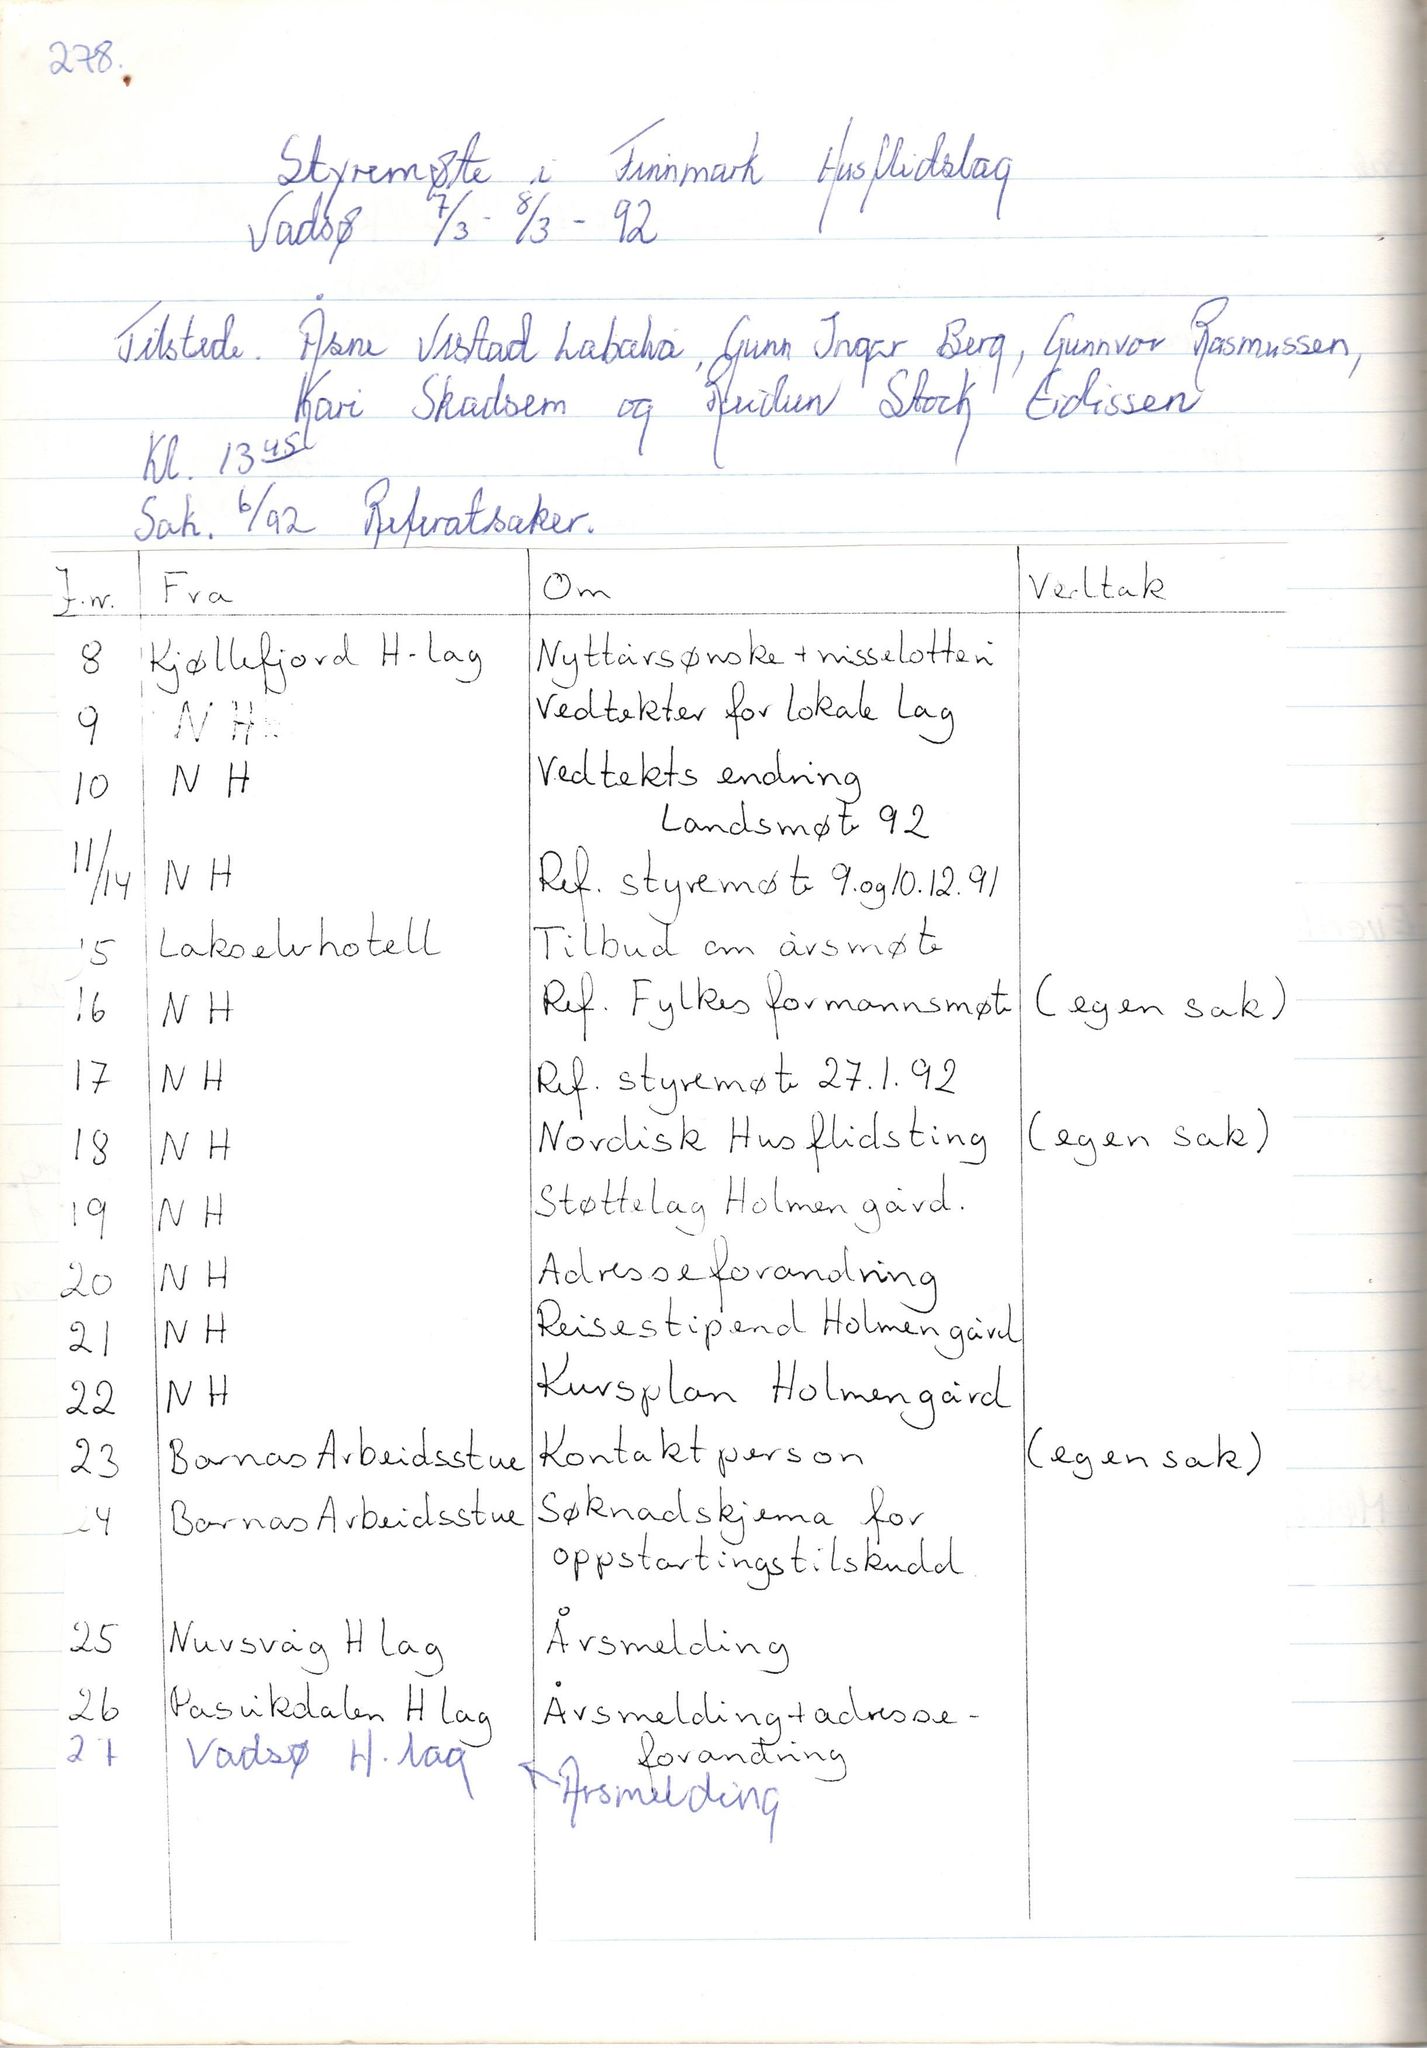 278.
Styremøte i Finnmark Husflidslag
Vadsø 7/3 - 8/3 - 92
Tilstede. Åsne Vistad Labahå, Gunn Inger Berg, Gunnvor Rasmussen,
Kari Skadsem og Reidun Stock Eidissen
Kl. 13 45
Sak. 6/92 Referatsaker.
J.nr. Fra Om Vedtak
8 Kjøllefjord H-lag Nyttårsønske + nisselotteri
9 N H Vedtekter for lokale lag
10 N H Vedtekts endring
Landsmøte 92
11/14 N H Ref. styremøte 9.og10.12.91
15 Lakselvhotell Tilbud om årsmøte
16 N H Ref. Fylkesformannsmøte (egen sak)
17 N H Ref. styremøte 27.1.92
18 N H Nordisk Husflidsting (egen sak)
19 N H Støttelag Holmen gård.
20 N H Adresseforandring
21 N H Reisestipend Holmen gård
22 N H Kursplan Holmen gård
23 Barnas Arbeidsstue Kontaktperson (egen sak)
24 Barnas Arbeidsstue Søknadskjema for
oppstartingstilskudd
25 Nuvsvåg H lag Årsmelding
26 Pasvikdalen H lag Årsmelding + adresse-
forandring
27 Vadsø H. lag Årsmelding